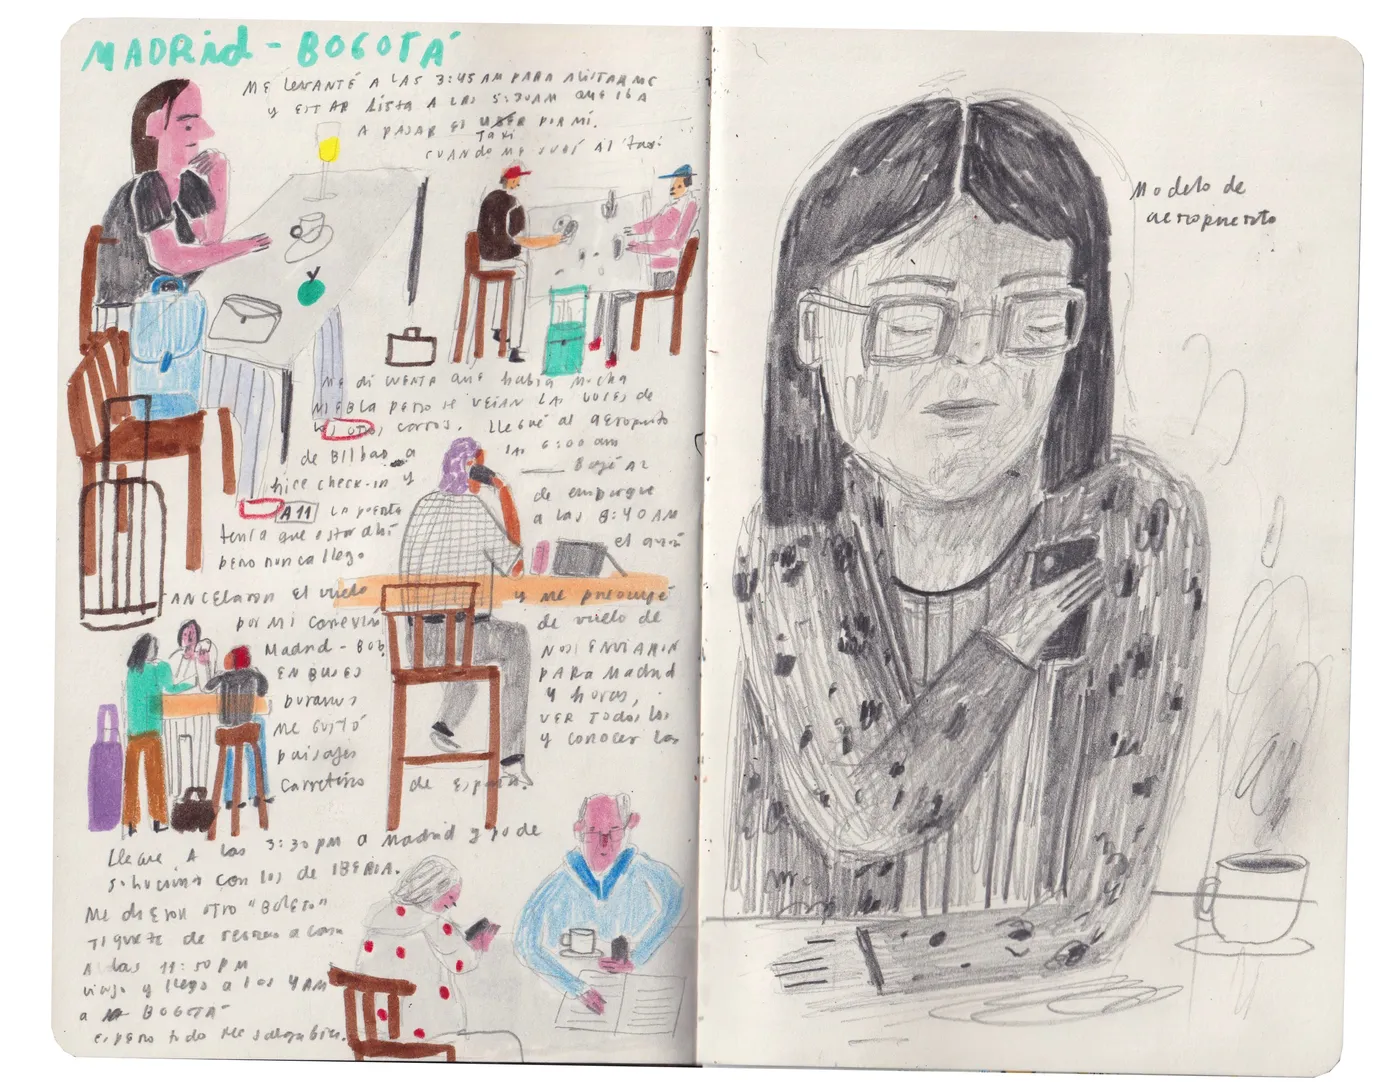 MADRid - BOGOTÁ
ME LEVANTÉ A LAS 3:45 AM PARA ALISTARME
y ESTAR LISTA A LAS 5:30AM QUE IBA
A PASAR EL UBER POR MÍ.
Taxi
CUANDO ME SUBÍ AL Taxi
ME di CUENTA que había mucha
NIEBLA pero SE VEÍAN LAS LUCES de
LOS OTROS CARROS. LLEGUÉ Al AEROPUERTO
de Bilbao a las 6:00 am
hice check-in y Bajé AL
de embarque
A11 LA puerta a las 8:40 AM
tenía que estar ahí el avión
pero nunca llegó
CANCELARON El vuelo y ME preocupé
por Mi CONEXIÓN de vuelo de
Madrid - Bog. NOS ENVIARON
EN BUSES PARA Madrid
y horas,
ME GUSTÓ VER TODOS LOS
paisajes y CONOCER LAS
carreteras de España.
LLEGUÉ A las 3:30 pm a Madrid y pude
solucionar CON LOS de IBERIA.
ME dieron otro "BOLETO"
TIQUETE de regreso a casa
A las 11:50 PM
viajo y llego a las 4AM
a BOGOTÁ
espero todo me salga bien.
Modelo de
aeropuerto